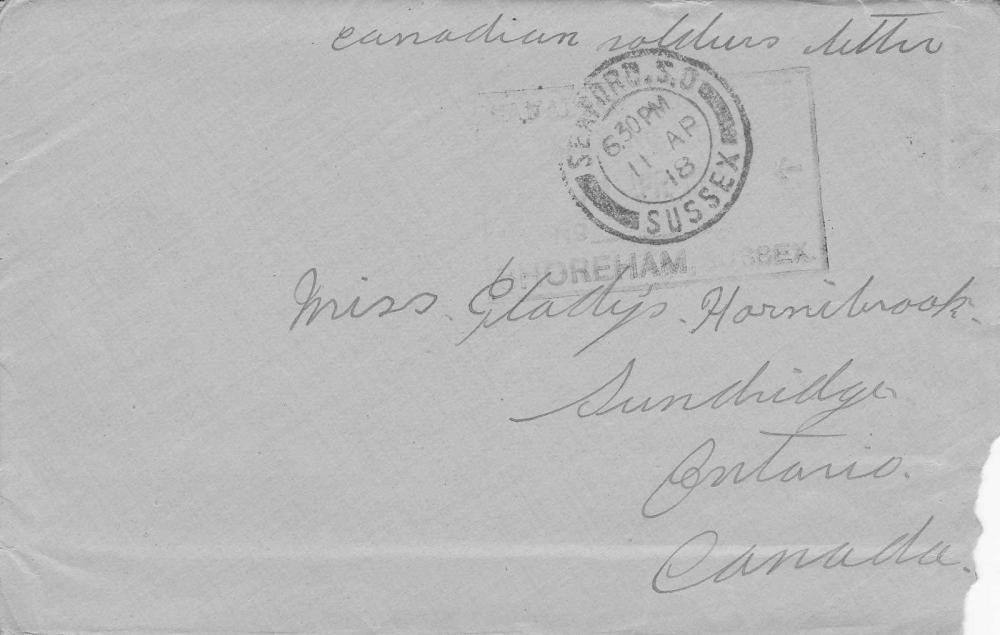 canadian soldiers letter
SEAFORD. S.O
6.30 PM
11 AP
18
SUSSEX
SHOREHAM, SUSSEX.
Miss. Gladys. Hornibrook.
Sundridge
Ontario.
Canada.